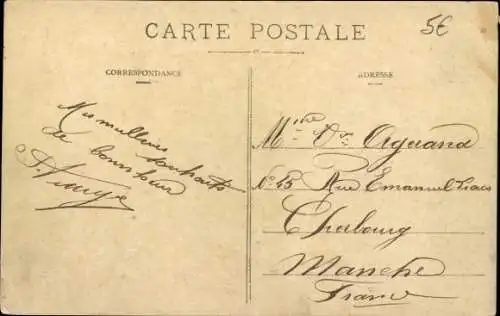 CARTE POSTALE
5€
CORRESPONDANCE
ADRESSE
Mes meilleurs souhaits
de bonheur
Mme Vve Aguand
No 45 Rue Emanuel Liais
Cherbourg
Manche
France